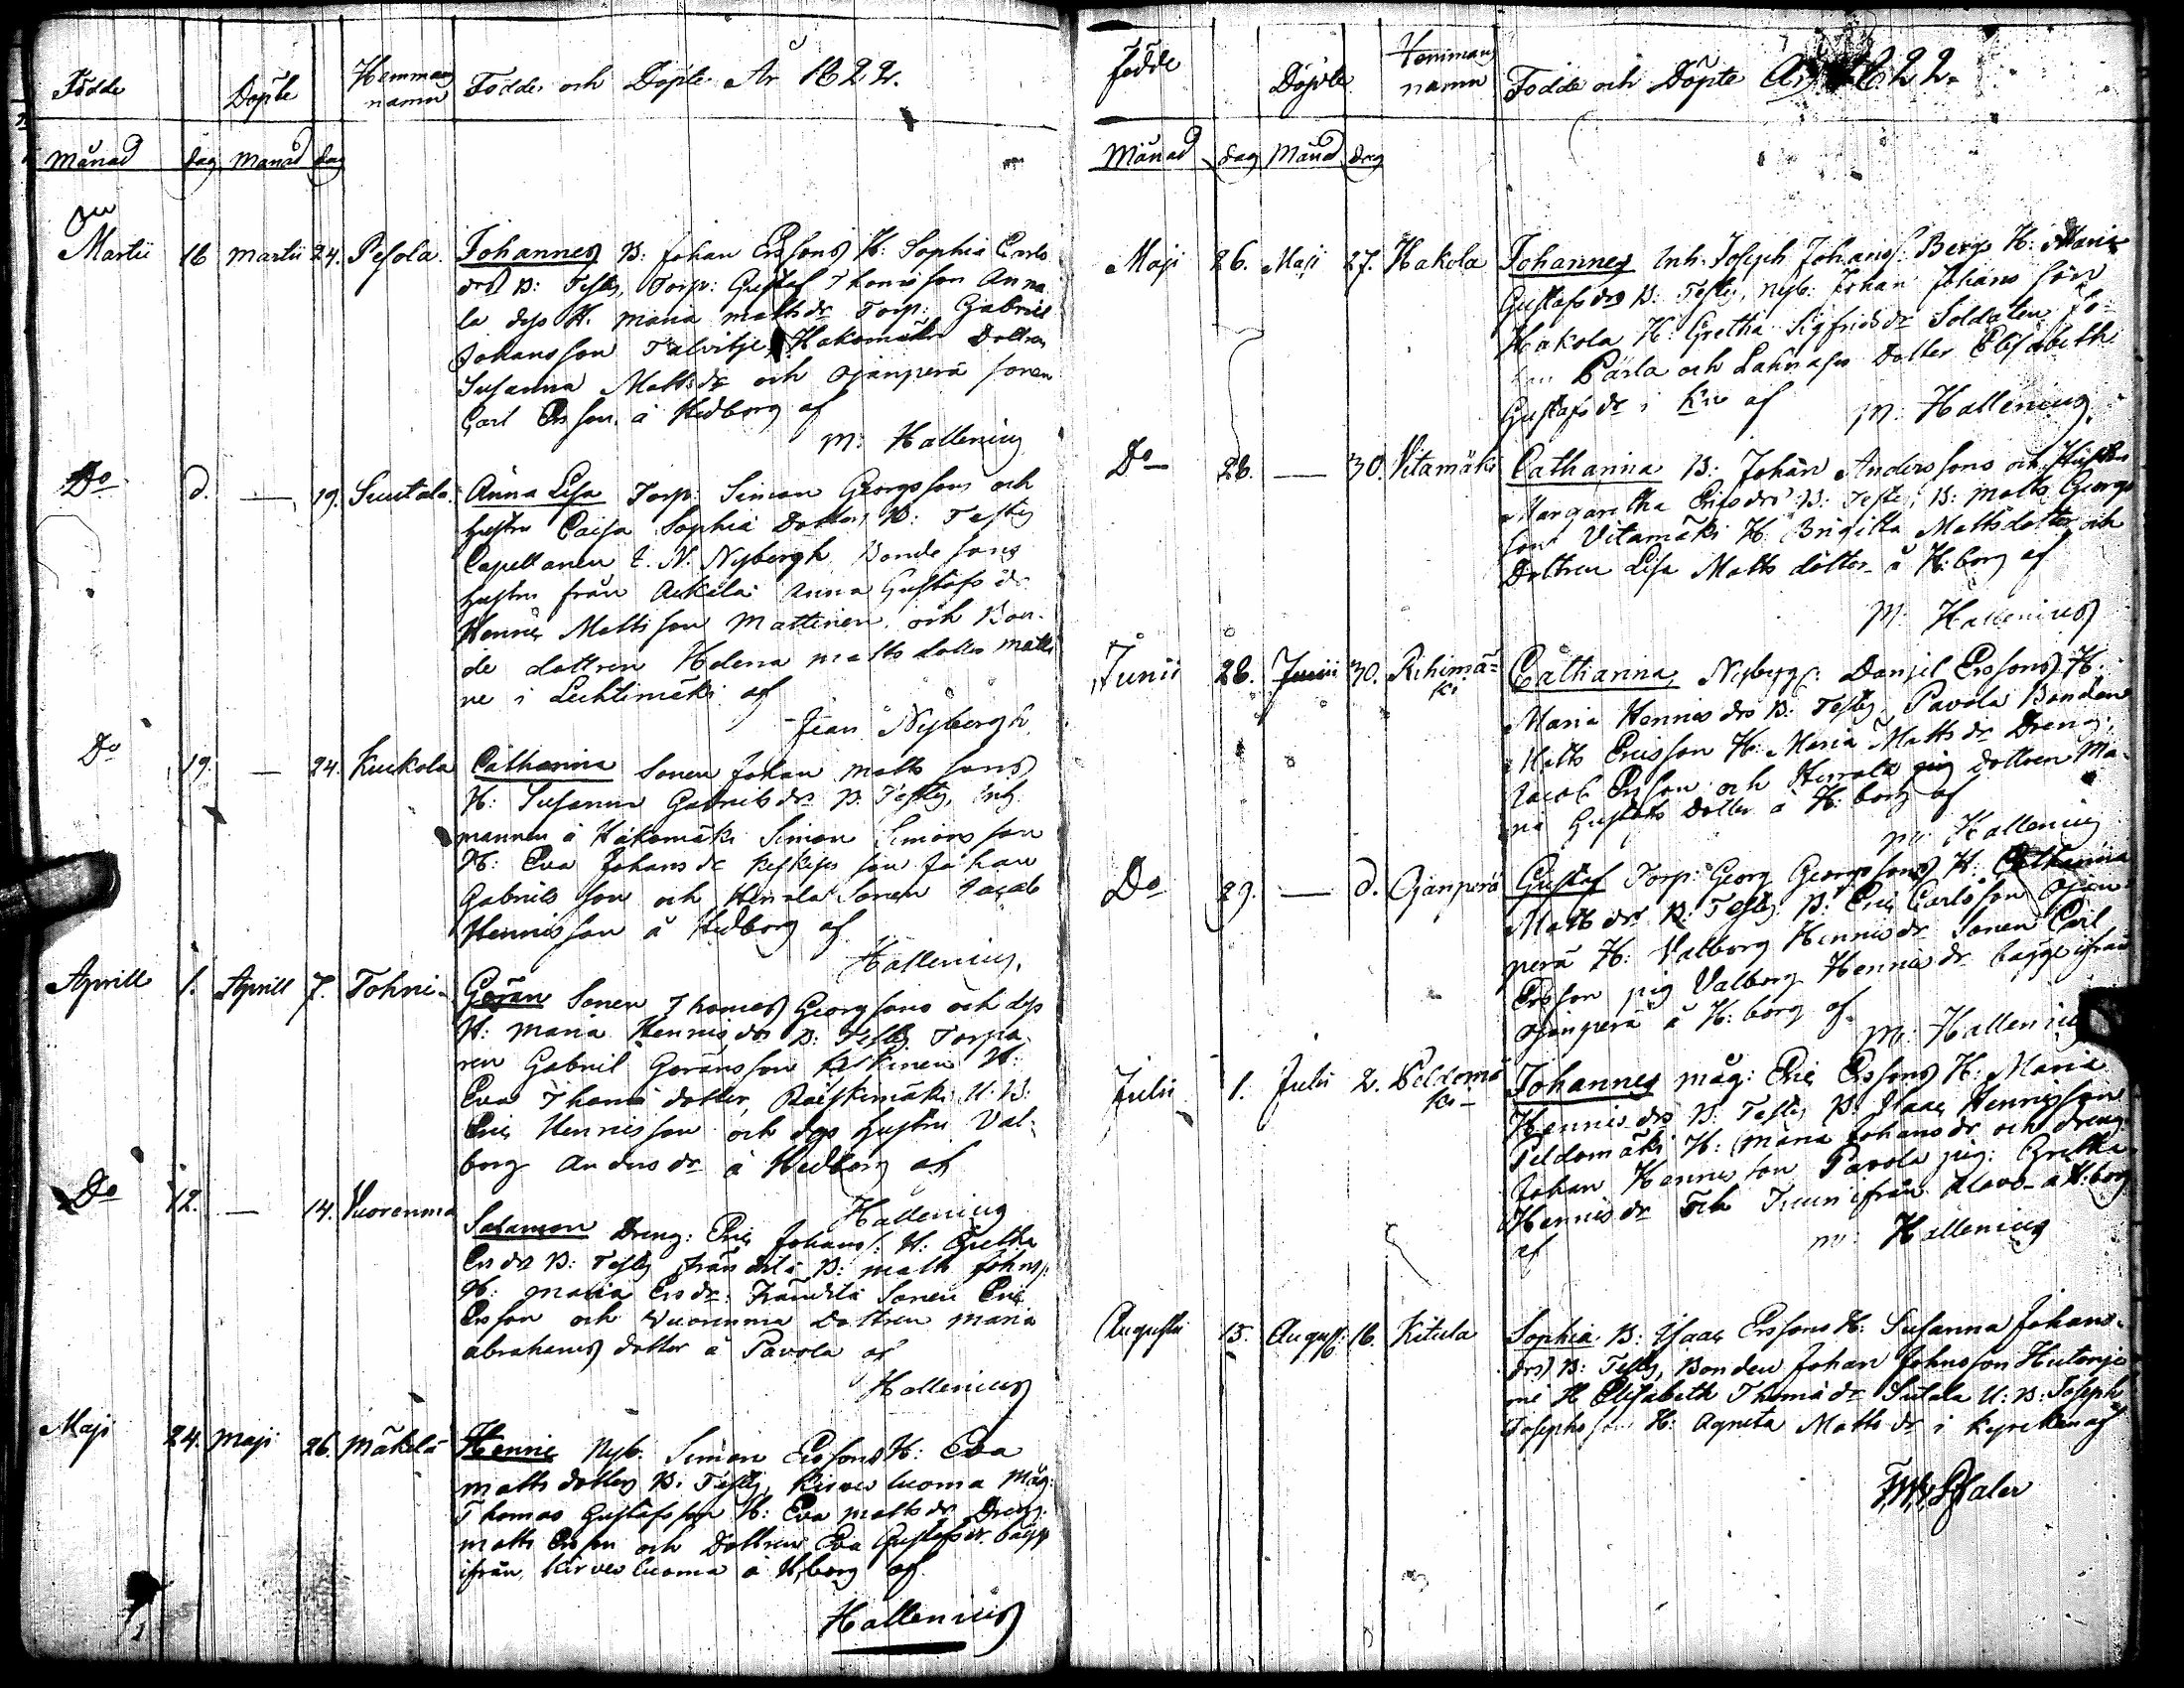 Födde Döpte Hemmans namn Födde och Döpte År 1822.
Månad dag Månad dag
Martii 16 Martii 24. Pesola. Johannes B: Johan Erssons H: Sophia Carls
drs B: Testes, Torp: Gustaf Thomisson Anna
la dess H. Maria Mattsdr Torp: Gabriel
Johansson Talvitje, Hakomäki Dottren
Susanna Mattsdr och Ojanperä sonen
Carl Ersson. á Hedborg af
M: Hallenius
Do d. — 19. Suutala. Anna Lisa Torp: Simon Georgssons och
hustru Caisa Sophia Dotter, B: Testes
Capellanen E. N. Nybergh, Bonde sons
hustru från Ackala Anna Gustafsdr
Henric Mattsson Mattinen, och Bon-
de dottren Helena Matts dotter Matti
ne i Lechtimäki af
Jean Nybergh
Do 19. — 24. Kuckola Catharina Sonen Johan Matts sons
H: Susanna Gabriels drs B. Testes, Inh
mannen å Hakomäki Simon Simons son
H: Eva Johans dr Keskises son Johan
Gabriels son och Herrala Sonen Jacob
Hennis son å Hedborg af
Hallenius.
Aprill 1. Aprill 7. Tohni- Göran Sonen Thomas Georgsons och dess
H: Maria Hennis drs B: Testes Torpa-
ren Gabriel Göransson Keskinen H:
Eva Thoma dotter, Raiskimäki U: B:
Eric Hennisson och dess hustru Val-
borg Anders dr å Hedborg af
Hallenius
Do 12. — 14. Vuorenma Salamon Dreng: Eric Johans: H: Gretha
Ers drs B: Testes Frändilä B: Matts Johns:
H: Maria Ersdr: Frändilä Sonen Eric
Ersson och Vuorenma Dottren Maria
Abrahams dotter å Pavola af
Hallenius
Maji 24. Maji 26. Mäkelä Hennic Nyb. Simon Erssons H: Eva
Matts dotters B. Testes, Kirves luoma Måg:
Thomas Gustafsson H: Eva Matts dr Dreng
Matts Ersson och Dottren Eva Gustafsdr. bägge
ifrån Kirves luoma å H:borg af.
Hallenius
Födde Döpte Hemmans namn Födde och Döpte År 1822.
Månad dag Månad dag
Maji 26. Maji 27. Hakola Johannes Inh. Joseph Johans: Bergs H: Maria
Gustafs drs B: Testes, Nyb: Johan Johans son
Hakola H: Gretha Sigfridsdr Soldaten Jo-
han Pärla och Lahnases Dotter Elisabeth
Gustafs dr i af
M: Hallenius
Do 28. — 30. Vitamäki Catharina B: Johan Anders sons och Hustru
Margaretha Ericsdrs B: Testes, B: Matts Georgs
son Vitamäki H: Brigitta Matts dotter och
Dottren Lisa Matts dotter å H:borg af
M: Hallenius
Junii 28. Junii 30. Rihimä=
ki Catharina, Nybygg: Daniel Erssons H.
Maria Hennis drs B: Testes, Pavola Bonden
Matts Ericsson H: Maria Matts dr Dreng:
Jacob Ersson och Herrala dottren Ma-
ria Gustafs Dotter å H: borg af
M: Hallenius
Do 29. — d. Ojanperä Gustaf Torp: Georg Georgssons H: Catharina
Matts drs B: Testes: B: Eric Carlsson Ojan-
perä H: Valborg Hennis dr Sonen Carl
Ersson pig Valborg Hennis dr bägge ifrån
Ojanperä å H: borg af.
M: Hallenius
Julii 1. Julii 2. Peldomä
ki- Johannes måg: Eric Erssons H: Maria
Hennis drs B: Testes B. Isaac Hennisson
Peldomäki H: Maria Johans dr och dreng
Johan Hennis son Pavola pig: Gretha
Hennis dr ifrån Alavo- å H:borg
af M: Hallenius
Augusti 15. August: 16. Kitula Sophia B: Isaac Erssons H: Susanna Johans-
drs B: Testes, Bonden Johan Johnsson
H Elisabeth Thoma dr Sutala U: B: Joseph
Josephs son H: Agneta Matts dr i Kyrckan af